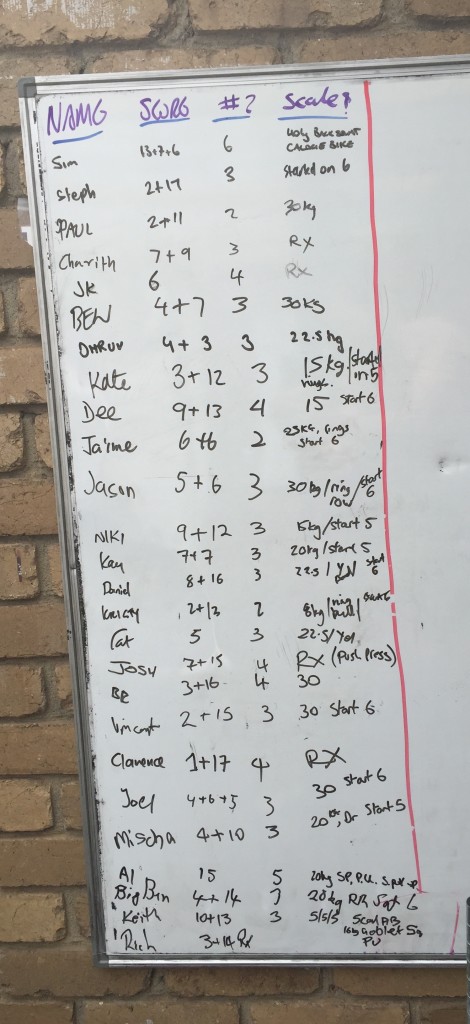 NAME SCORE #? Scale?
Sim 13+7+6 6 CALORIE BIKE
Steph 2+17 3 Started on 6
PAUL 2+11 2 30kg
Charith 7+9 3 RX
JK 6 4 RX
BEN 4+7 3 30KG
DHRUV 4+3 3 22.5kg
Kate 3+12 3 15kg/rings/start in 5
Dee 9+13 4 15 Start 6
Jaime 6+6 2 rings Start 6
Jason 5+6 3 30kg/ring row/start 6
NIKI 9+12 3 15kg/start 5
Kay 7+7 3 20kg/start 5
Daniel 8+16 3 22.5/ start 6
2+13 2 8kg/ring start 6
Cat 5 3 22.5/
JOSH 7+15 4 RX (Push Press)
3+16 4 30
Vincent 2+15 3 30 Start 6
Clarence 1+17 4 RX
Joel 4+6+5 3 30 Start 6
Mischa 4+10 3 20 Start 5
Al 15 5 20kg
Big Ben 4+14 20kg RR, 6
Keith 10+13 3 5/5/5
16kg Goblet Sq
Rich 3+14 Rx PU